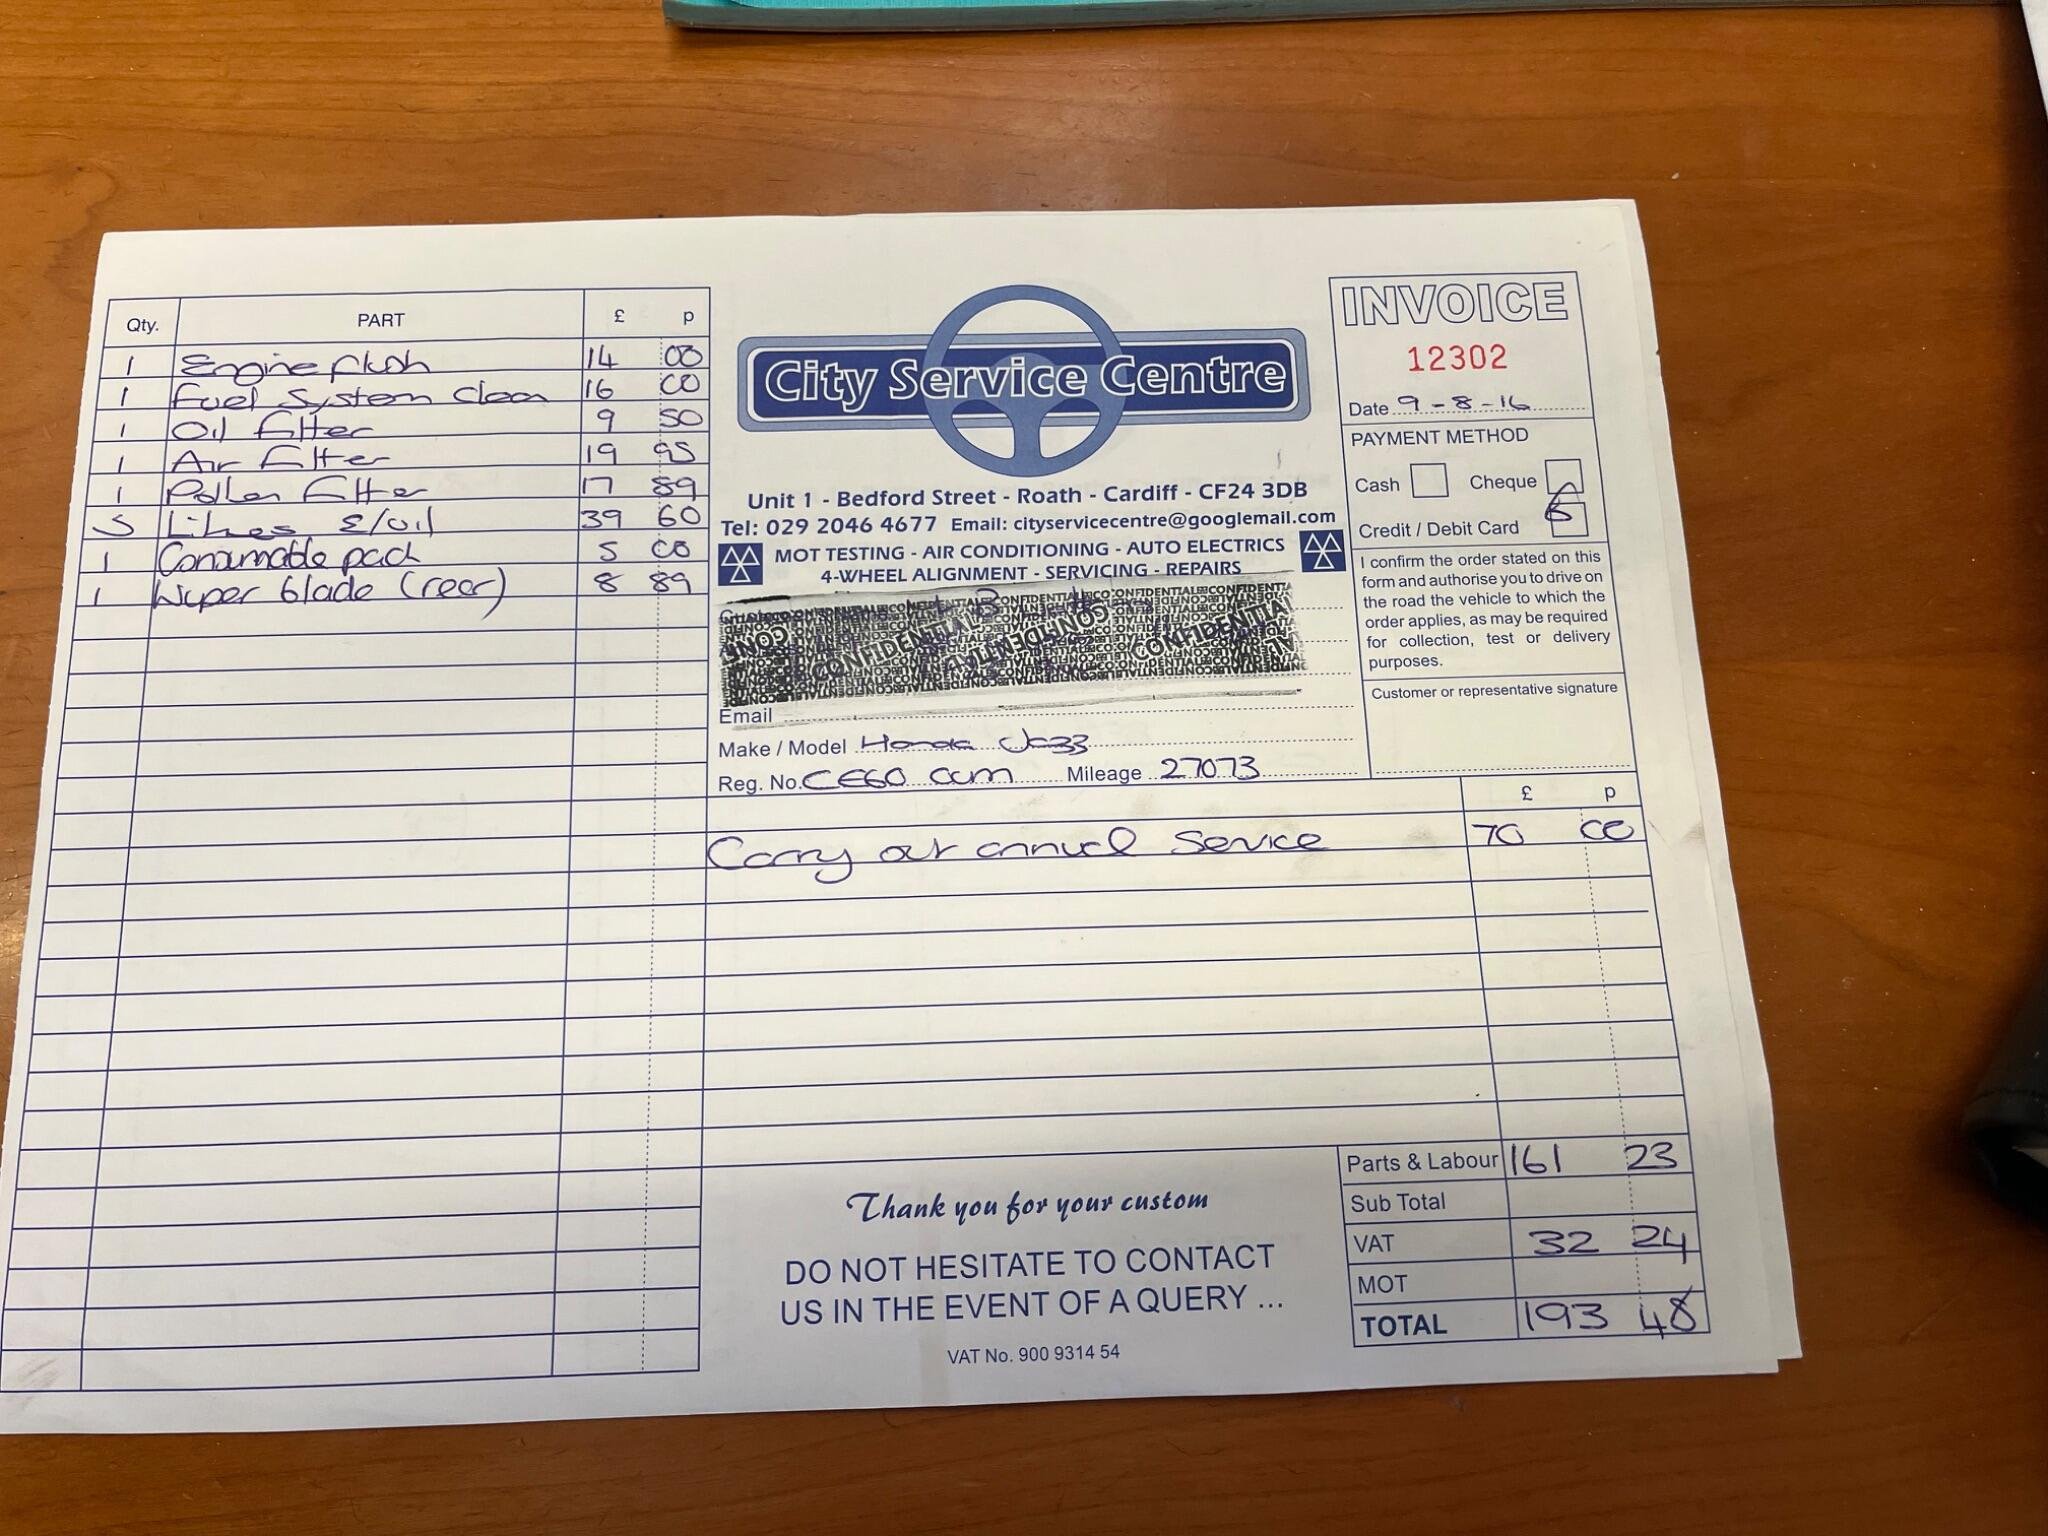 Qty. PART £ p
1 Engine flush 14 00
1 Fuel System Clean 16 00
1 Oil filter 9 50
1 Air filter 19 95
1 Pollen filter 17 89
5 Litres E/oil 39 60
1 Consumable pack 5 00
1 Wiper blade (rear) 8 89
City Service Centre
Unit 1 - Bedford Street - Roath - Cardiff - CF24 3DB
Tel: 029 2046 4677 Email: cityservicecentre@googlemail.com
MOT TESTING - AIR CONDITIONING - AUTO ELECTRICS
4-WHEEL ALIGNMENT - SERVICING - REPAIRS
CONFIDENTIAL CONFIDENTIAL CONFIDENTIAL
Email
Make / Model Honda Jazz
Reg. No. CE60 CCM Mileage 27073
INVOICE
12302
Date 9-8-16
PAYMENT METHOD
Cash Cheque
Credit / Debit Card
I confirm the order stated on this
form and authorise you to drive on
the road the vehicle to which the
order applies, as may be required
for collection, test or delivery
purposes.
Customer or representative signature
£ p
Carry out annual Service 70 00
Thank you for your custom
DO NOT HESITATE TO CONTACT
US IN THE EVENT OF A QUERY ...
VAT No. 900 9314 54
Parts & Labour 161 23
Sub Total
VAT 32 24
MOT
TOTAL 193 48